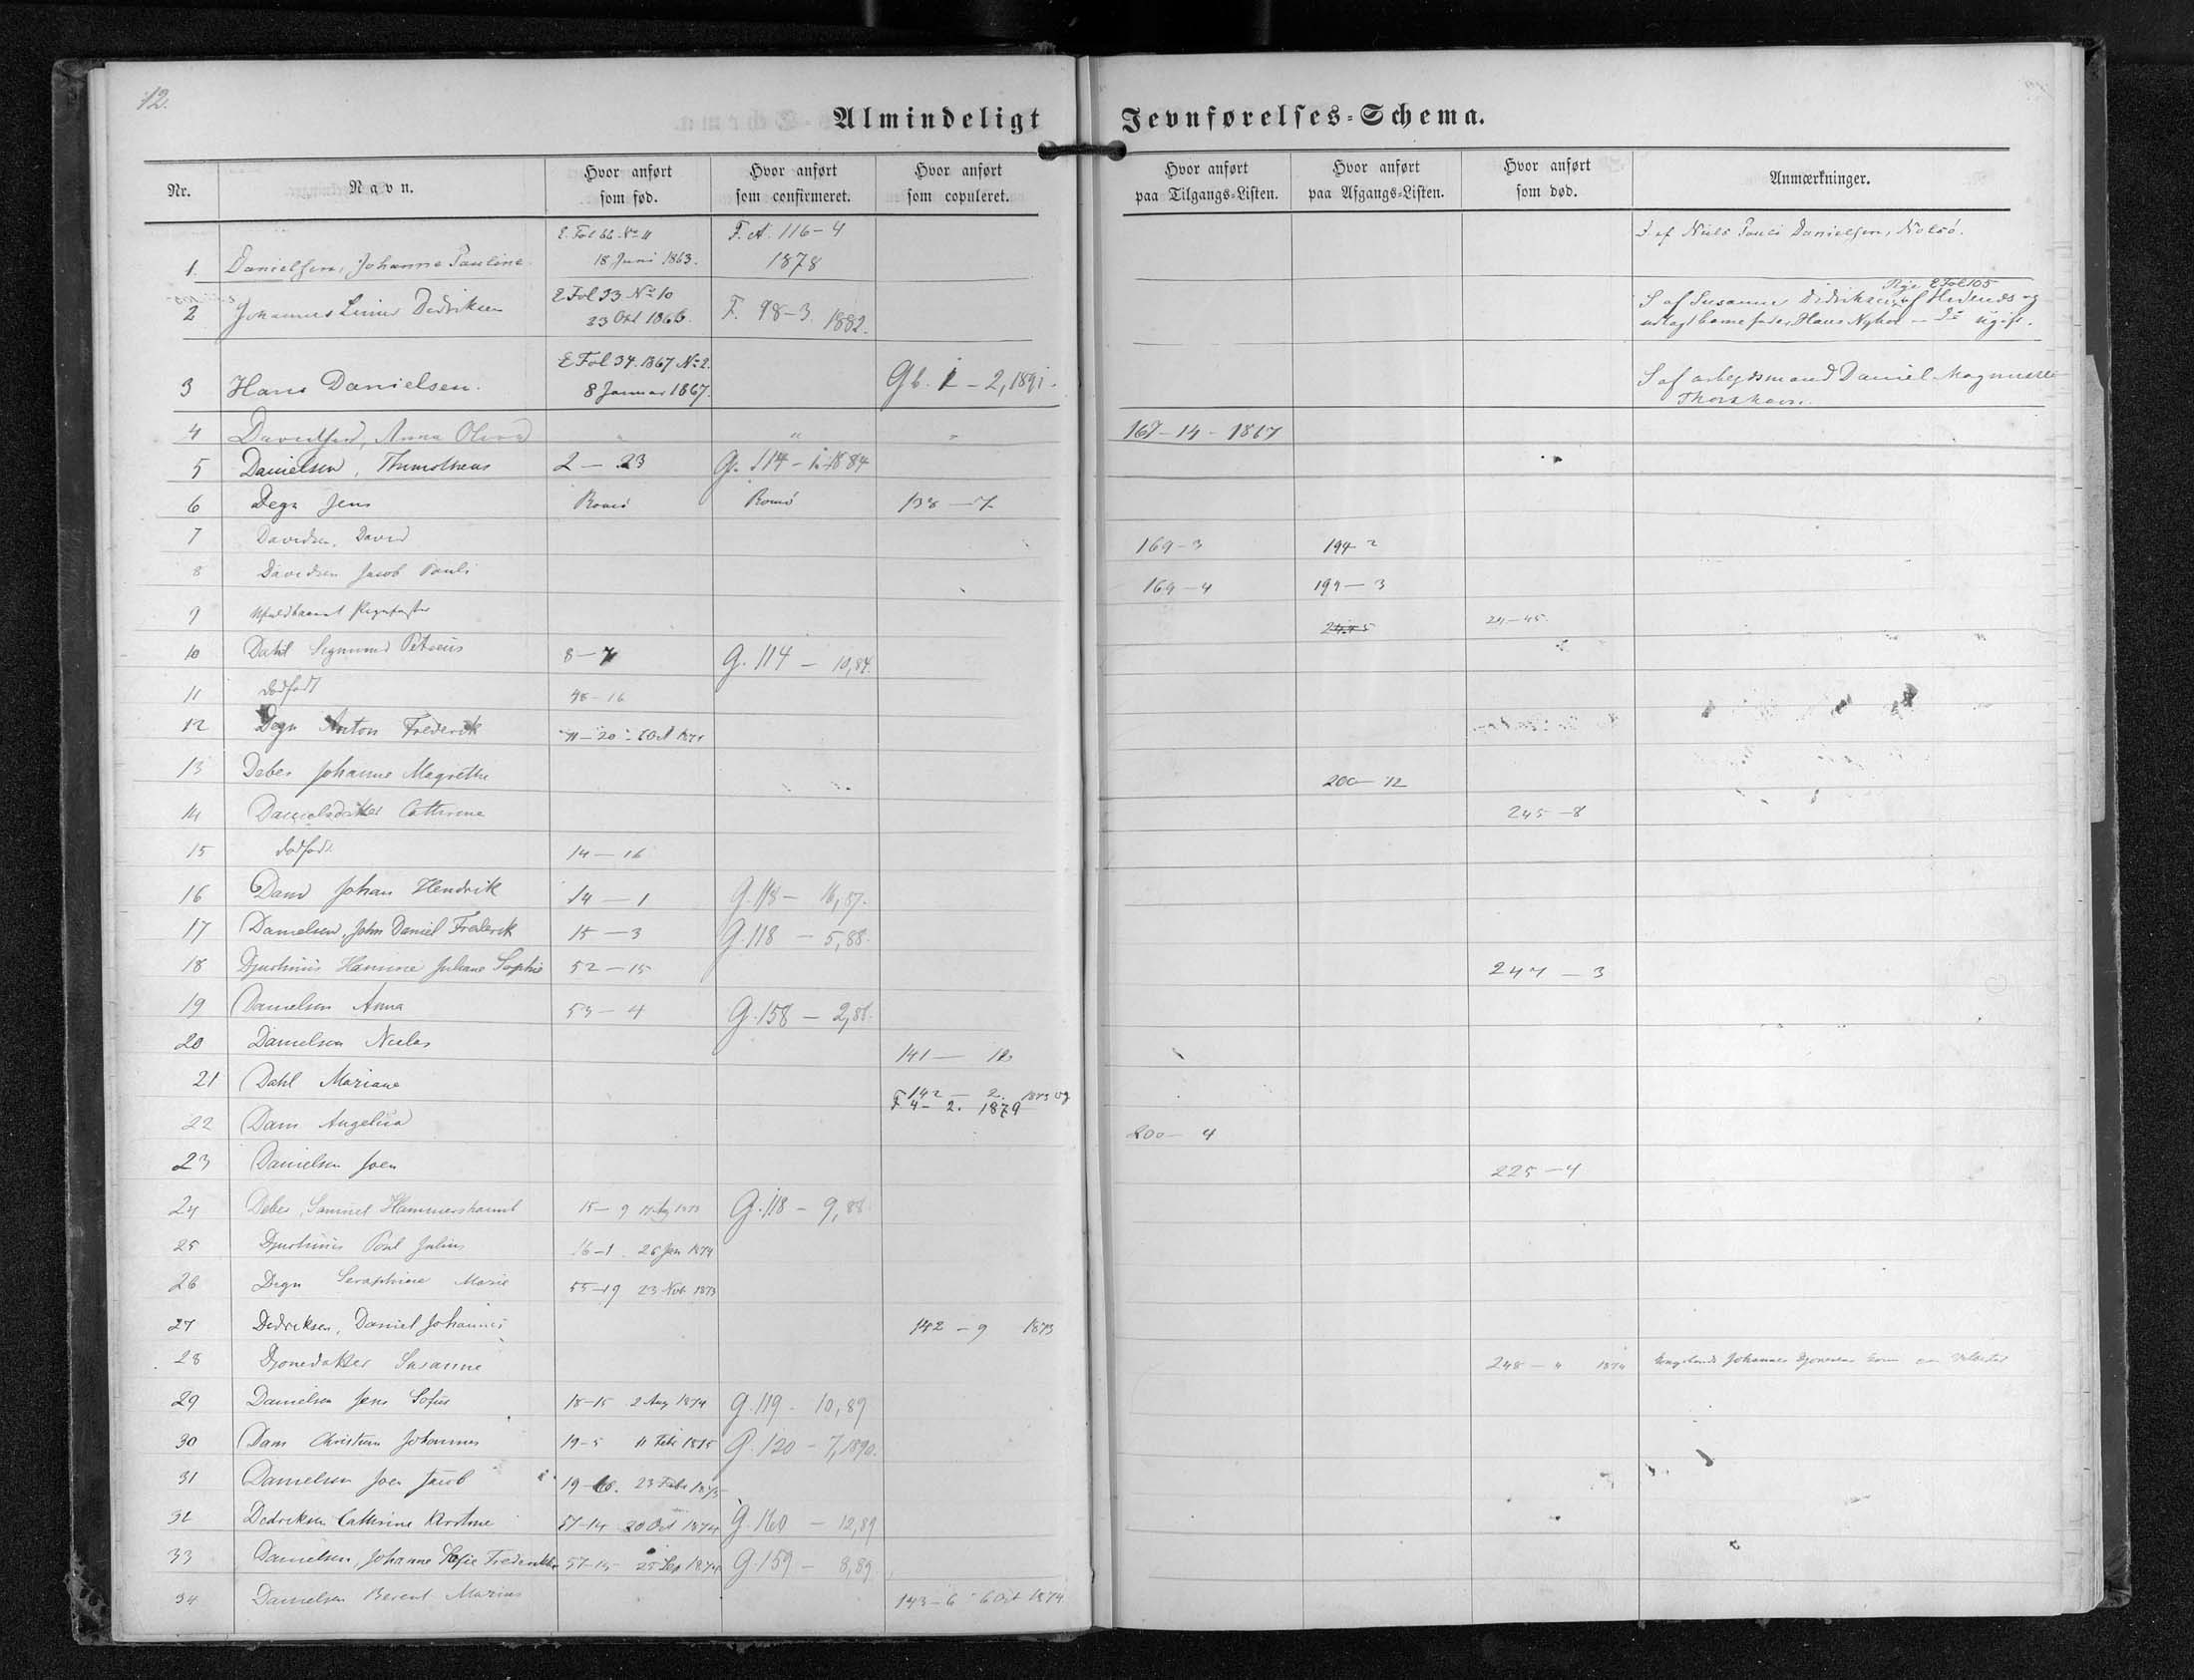 12.
Almindeligt Jevnførelses-Schema.
Nr. Navn. Hvor anført som fød. Hvor anført som confirmeret. Hvor anført som copuleret. Hvor anført paa Tilgangs-Listen. Hvor anført paa Afgangs-Listen. Hvor anført som død. Anmærkninger.
E. Fol 66 No 11 F. A. 116-4 D af Niels Danielsen, Nolsö.
1. Danielsen, Johanne Pauline 18 Juni 1863. 1878
E Fol 33 No 10 E Fol 105
2 Johannes Didriksen 23 Okt 1866. F. 98-3. 1882. S af Susanne Didriksen af og
Hans ugift.
E Fol 34. 1867 No 2.
3 Hans Danielsen. 8 Januar 1867. Gb. 1-2, 1891. S af arbejdsmand Daniel
Thorshavn.
4 Davidsen, Anna " " " 167-14-1867
5 Danielsen, Thimotheus 2-23 G. 114-1-1884
6 Degn Jens Romö Romö 138-7
7 Davidsen, David 169-3 194-2
8 Davidsen Jacob Pauli 169-4 194-3
9 24-45
10 Dahl Sigmund Petreus 8-7 G. 114-10,84.
11 dødfødt 48-16
12 Degn Anton Frederik 11-20
13 Debes Johanne Magrethe 200-12
14 Danielsdatter Cathrine 245-8
15 dødfødt 14-16
16 Dam Johan Hendrik 14-1 G. 118- 16,87.
17 Danielsen, John Daniel Frederik 15-3 G. 118-5,88.
18 Djurhuus Hansine Juliane Sophie 52-15 247-3
19 Danielsen Anna 53-4 G. 158-2,88.
20 Danielsen Niclas 141-
21 Dahl Mariane 142-2. 1873 og
F 4-2. 1879
22 Dam Angelica 200-4
23 Danielsen Joen 225-4
24 Debes, Samuel Hammershaimb 15-9 G. 118-9,88.
25 Djurhuus Poul Julius 16-1. 26 Jan 1874
26 Degn Seraphine Marie 55-19 23 Nov 1873
27 Didriksen, Daniel Johannes 142-9 1873
28 Djonedatter Susanne 248-4 1874 Johannes Djonesens
29 Danielsen Jens Sofus 18-15 2 Aug 1874 G. 119-10,89
30 Dam Christian Johannes 19-5 11 Febr 1875 G. 120-7,1890.
31 Danielsen Joen Jacob 19-6. 23 Febr 1875
32 Didriksen Cathrine Kirstine 57-14 20 Oct 1874 G. 160-12,89
33 Danielsen, Johanne Sofie Frederikke 57-15 25 Sep 1874 G. 159-8,89
34 Danielsen Berent Marius 143-6 6 Oct 1874